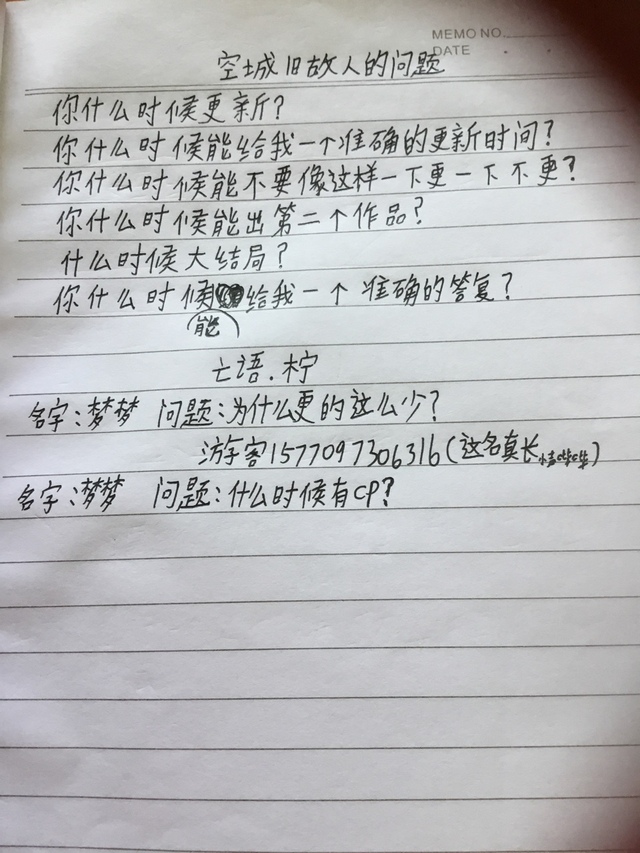 MEMO NO.
DATE
空城旧故人的问题
你什么时候更新?
你什么时候能给我一个准确的更新时间?
你什么时候能不要像这样一下更一下不更?
你什么时候能出第二个作品?
什么时候大结局?
你什么时候给我一个准确的答复?
能
亡语.柠
名字:梦梦 问题:为什么更的这么少?
游客1577097306316(这名真长)
名字:梦梦 问题:什么时候有CP?